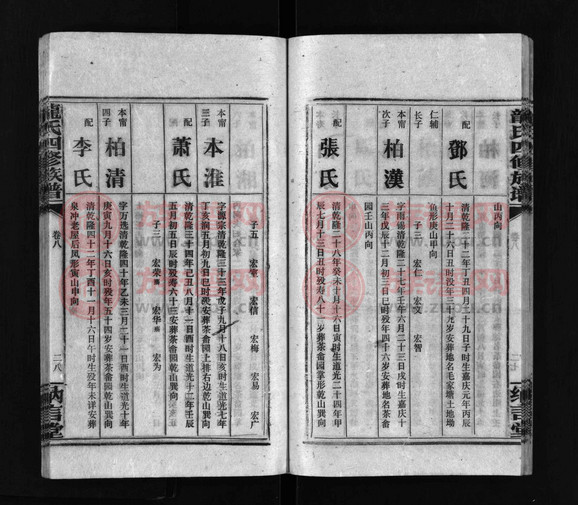 龍氏四修族譜
山丙向
配
鄧氏
清乾隆四十二年丁丑四月二十九日子時生嘉慶元年丙辰
十月二十六日丑時歿年三十九歲安葬地名毛家壋土地坳
魚形庚山甲向
子三 宏仁 宏文 宏智
仁輔
長子
柏漢
次子
字雨碭清乾隆二十七年壬午六月二十三日戌時生嘉慶十
三年戊辰十二月初三日巳時歿年四十六歲安葬地名茶畲
園壬山丙向
配
張氏
清乾隆二十八年癸未十月十六日寅時生道光二十四年甲
辰七月十三日丑時歿壽八十二歲安葬茶畲園掌形乾山巽向
子五 宏奎 宏信 宏梅 宏易 宏广
本甯
三子
本淮
字源宗清乾隆三十三年戊子九月十八日亥時生道光七年
丁亥潤五月初九日巳時歿安葬茶畲園上排右邊乾山巽向
配
蕭氏
清乾隆三十四年己丑八月十一日酉時生道光十二年壬辰
五月初五日辰時歿壽六十三安葬茶畲園乾山巽向
子三 宏榮 宏華 宏为
本甯
四子
柏清
字万选清乾隆四十年乙未三月二十一日酉時生道光十年
庚寅九月十六日亥時歿年五十四歲安葬茶畲園乾山巽向
配
李氏
清乾隆四十二年丁酉十一月十六日午時生歿年未詳安葬
泉冲老屋后鳳形寅山甲向
龍氏四修族譜
卷八
二八
納言堂